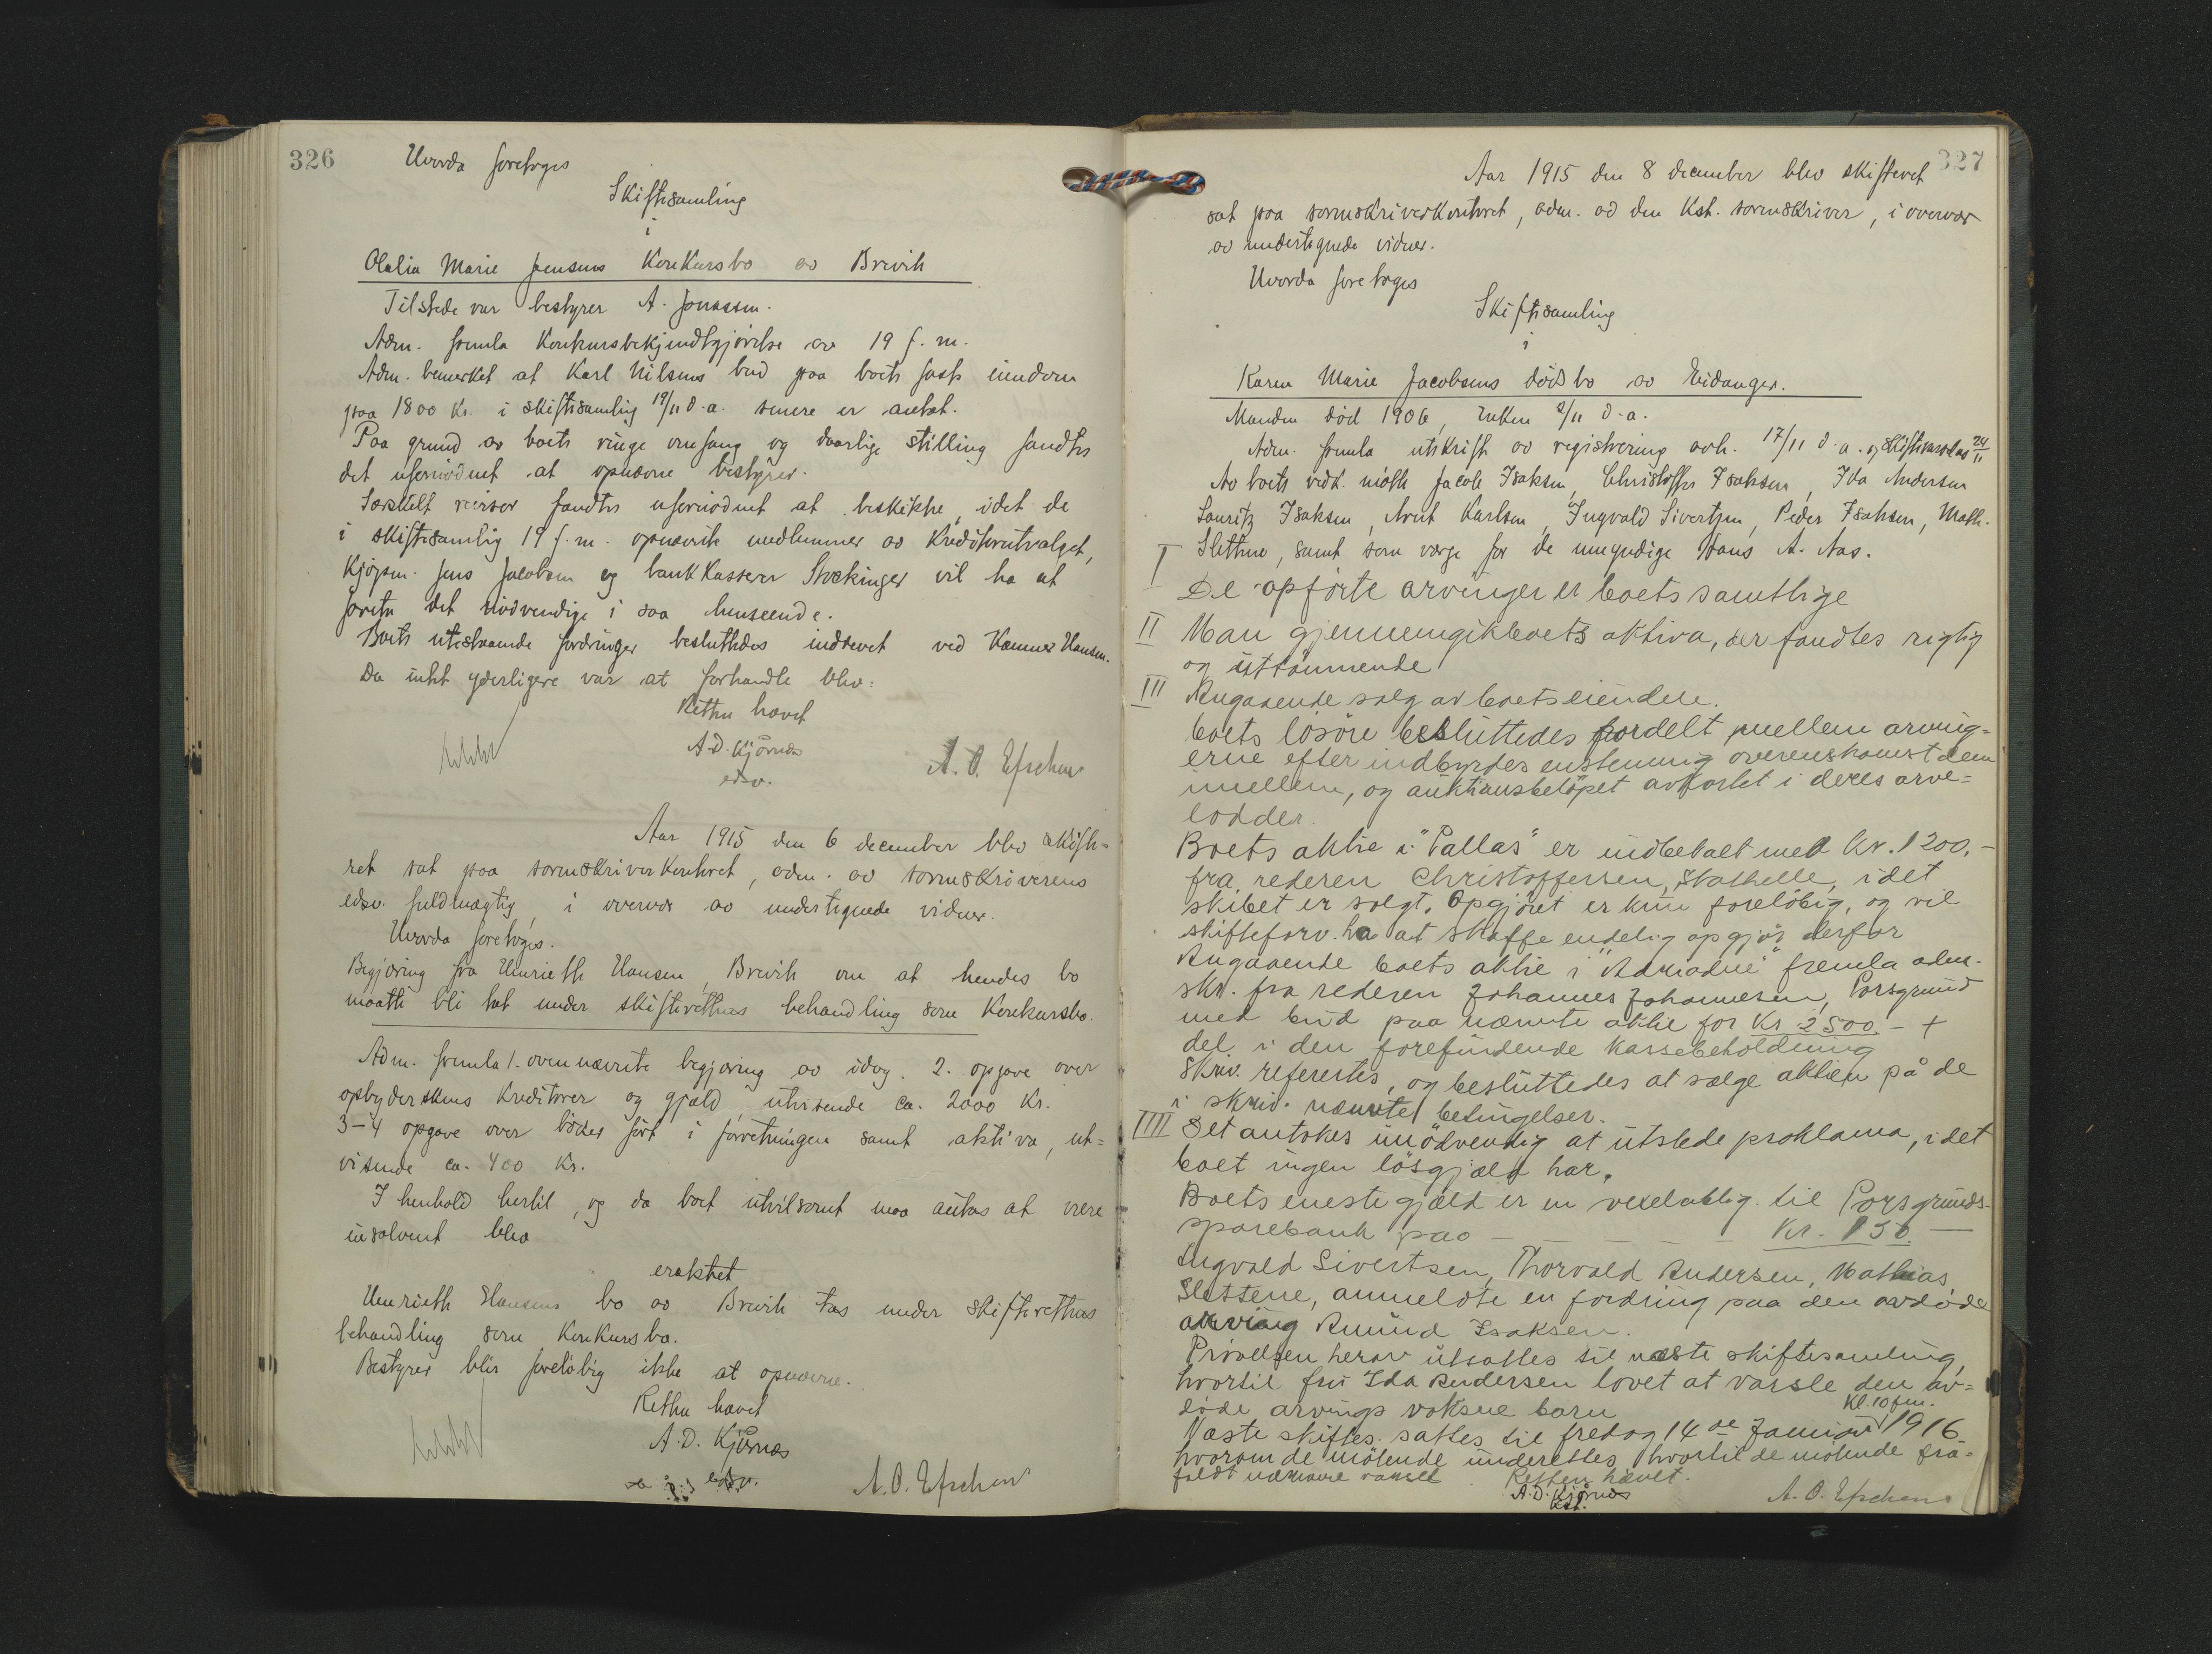 326
Hvorda foretoges
Skiftesamling
i
Olalia Marie Jensens Konkursbo av Brevik
Tilstede var bestyrer A. Jonassen.
Adm. fremla Konkursbekjendtgjørelse av 19 f. m.
Adm. bemerket at Karl Nilsens bud paa boets faste eiendom
paa 1800 Kr. i skiftesamling 19/11 d.a. senere er antat.
Paa grund av boets ringe omfang og daarlige stilling fandtes
det ufornødent at opnævne bestyrer.
Særskilt revisor fandtes ufornødent at beskikke, idet de
i skiftesamlig 19 f. m. opnævnte medlemmer av Kreditorutvalget,
Kjøpm. Jens Jacobsen og bankkasserer Stockinger vil ha at
foreta det nødvendige i saa henseende.
Boets utestaaende fordringer besluttedes inddrevet ved Kæmner Hansen.
Da intet yderligere var at forhandle blev:
Retten hævet
A.D. Kjörnæs
edsv.
A. O. Efschen
Aar 1915 den 6 december blev skifte-
ret sat paa sorenskriverkontoret, adm. av sorenskriverens
edsv. fuldmægtig, i overvær av undertegnede vidner.
Hvorda foretoges.
Begjæring fra Henriette Hansen, Brevik om at hendes bo
maatte bli tat under skifterettens behandling som Konkursbo.
Adm. fremla 1. ovennævnte begjæring av idag. 2. opgave over
opbyderskens Kreditorer og gjæld, utvisende ca. 2000 Kr.
3-4 opgave over bøker ført i forretningen samt aktiva, ut=
visende ca. 400 Kr.
I henhold hertil, og da boet utvilsomt maa antas at være
insolvent blev
eraktet
Henriette Hansens bo av Brevik tas under skifterettens
behandling som Konkursbo.
Bestyrer blir foreløbig ikke at opnævne.
Retten hævet
A.D. Kjörnæs
edsv.
A. O. Efschen
327
Aar 1915 den 8 december blev skifteret
sat paa sorenskriverkontoret, adm. av den Kst. sorenskriver, i overvær
av undertegnede vidner.
Hvorda foretoges
Skiftesamling
i
Karen Marie Jacobsens dödsbo av Eidanger.
Manden död 1906, Enken 2/11 d.a.
Adm. fremla utskrift av registrering avh. 17/11 d.a. og skiftevarsel av 24/11
Av boets vedk. møtte Jacob Isaksen, Christoffer Isaksen, Ida Andersen
Lauritz Isaksen, Arnt Karlsen, Ingvald Sivertsen, Peder Isaksen, Math.
Slettene, samt som verge for de umyndige Hans A. Aas.
I De opførte arvinger er boets samtlige
II Man gjennemgik boets aktiva, der fandtes rigtig
og uttømmende
III Angaaende salg av boets eiendele.
Boets løsøre besluttedes fordelt mellem arving=
erne efter indbyrdes enstemmig overenskomst dem
imellem, og auktionsbeløpet avkortet i deres arve=
lodder.
Boets aktie i "Pallas" er indbetalt med kr. 1200.-
fra rederen Christoffersen, Stathelle, idet
skibet er solgt. Opgjöret er kun foreløbig, og vil
skifteforv. ha at skaffe endelig opgjör derfor
Angaaende boets aktie i "Adriadne" fremla adm.
skr. fra rederen Johannes Johannesen, Porsgrund
med bud paa nævnte aktie for Kr 2500.- +
del i den forefindende kassebeholdning
Skriv. refertes, og besluttedes at sælge aktien på de
i skriv. nævnte betingelser.
IIII Det antokes unødvendig at utstede proklama, idet
boet ingen løsgjæld har.
Boets eneste gjæld er en vexelobblig. til Porsgrunds-
sparebank paa - - - - - Kr. 150.-
Ingvald Sivertsen, Thorvald Andersen, Mathias
Slettene, anmeldte en fordring paa den avdøde
arving Amund Isaksen.
Prøvelsen herav utsattes til næste skiftesamling,
hvortil fru Ida Andersen lovet at varsle den av=
døde arvings voksne barn
Kl. 10 fm.
Næste skiftes. sattes til fredag 14de Januar 1916
hvorom de møtende underettes, hvortil de møtende fra-
faldt nærmere varsel. Retten hævet.
A.D. Kjörnæs
Kst.
A. O. Efschen